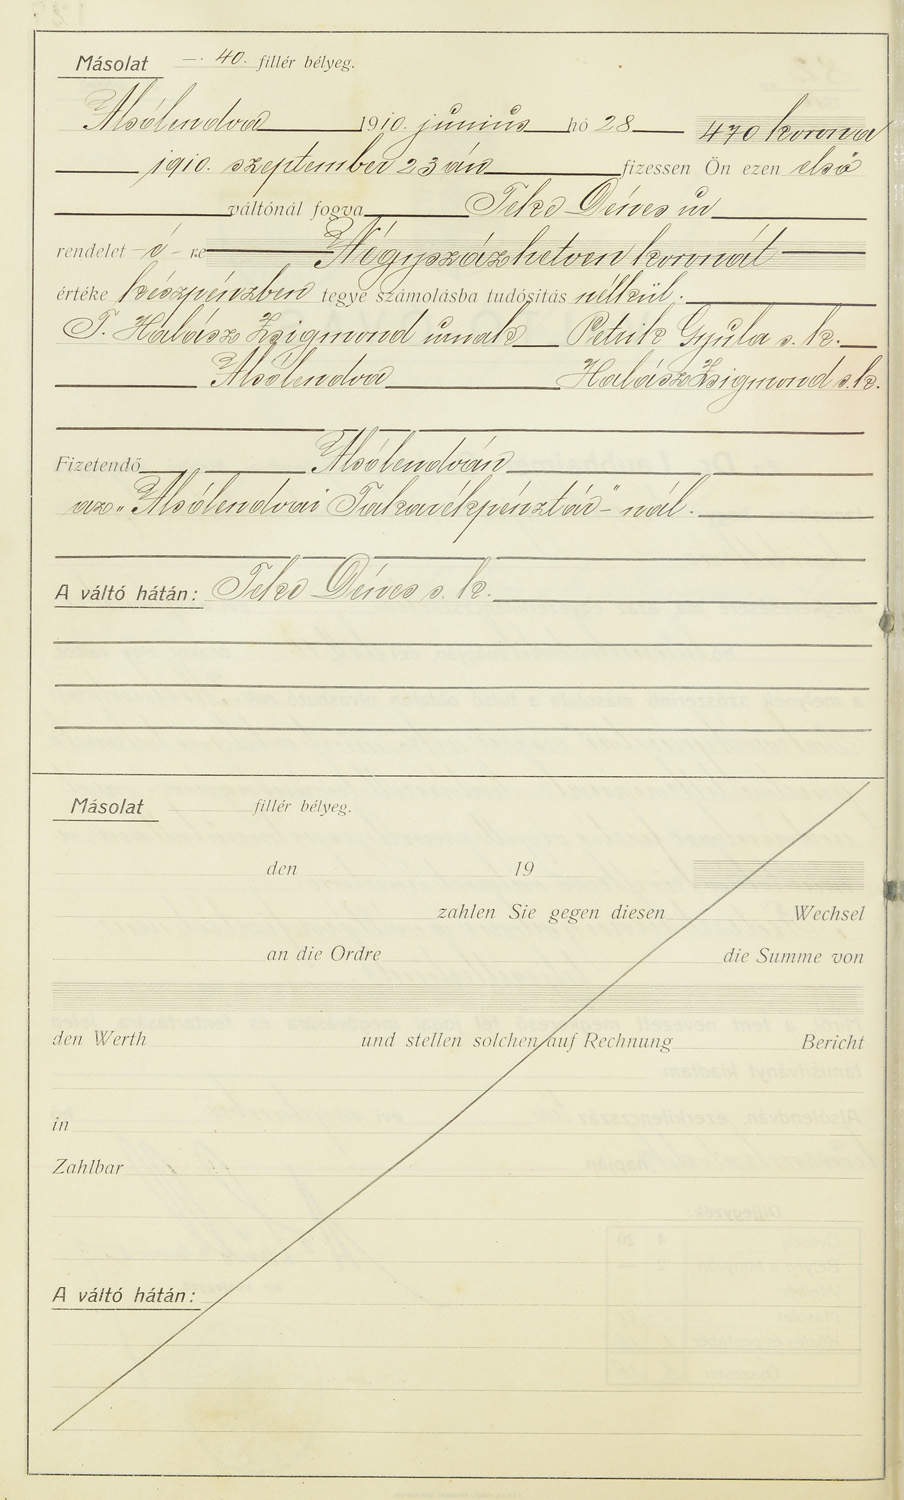 Másolat —. 40. fillér bélyeg.
Alsólendva 1910. junius hó 28 470 korona
1910. szeptember 23 án fizessen Ön ezen első
váltónál fogva Teke Dénes úr
rendelet -é- re Négyszázhetven koronát
értéke készpénzben tegye számolásba tudósitás nélkül.
T. Halász Zsigmond urnak Petrik Gyula s. k.
Alsólendva Halász Zsigmond s. k.
Fizetendő Alsólendván
az „Alsólendvai Takarékpénztár-" nál.
A váltó hátán: Teke Dénes s. k.
Másolat fillér bélyeg.
den 19
zahlen Sie gegen diesen Wechsel
an die Ordre die Summe von
den Werth und stellen solchen auf Rechnung Bericht
in
Zahlbar
A váltó hátán: